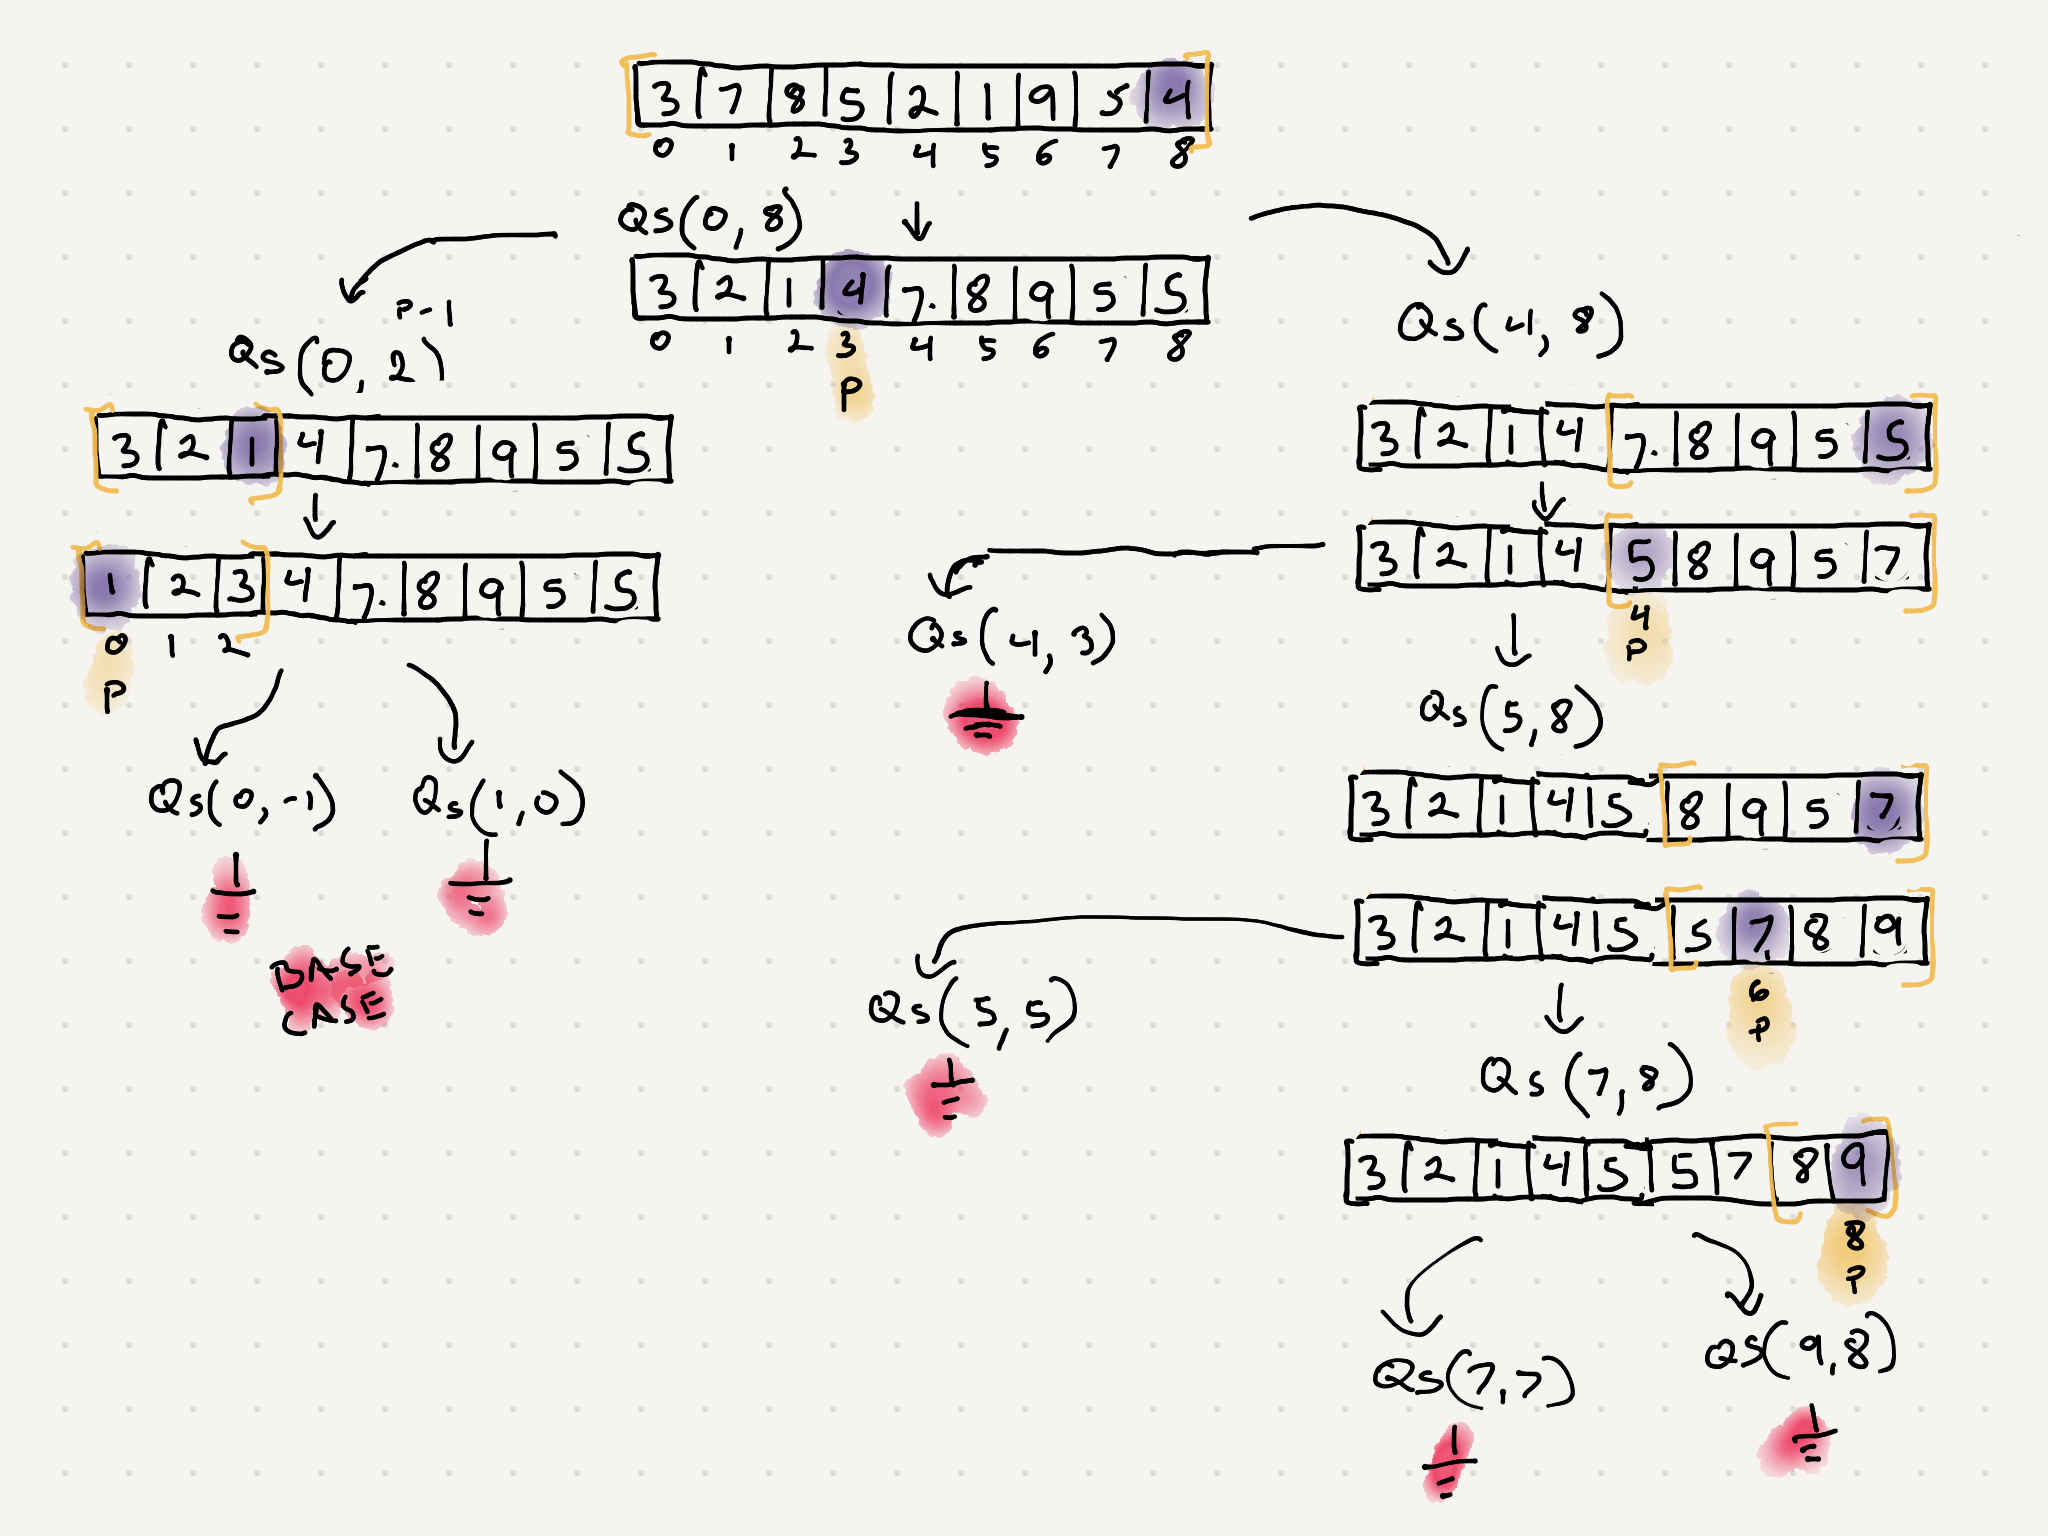 3 7 8 5 2 1 9 5 4
0 1 2 3 4 5 6 7 8
Qs(0, 8)
3 2 1 4 7. 8 9 5 5
0 1 2 3 4 5 6 7 8
P
P-1
Qs(0, 2)
3 2 1 4 7. 8 9 5 5
1 2 3 4 7. 8 9 5 5
0 1 2
P
Qs(0, -1)
Qs(1, 0)
BASE
CASE
Qs(4, 8)
3 2 1 4 7. 8 9 5 5
3 2 1 4 5 8 9 5 7
4
P
Qs(4, 3)
Qs(5, 8)
3 2 1 4 5 8 9 5 7
3 2 1 4 5 5 7 8 9
6
P
Qs(5, 5)
Qs(7, 8)
3 2 1 4 5 5 7 8 9
8
P
Qs(7, 7)
QS(9, 8)